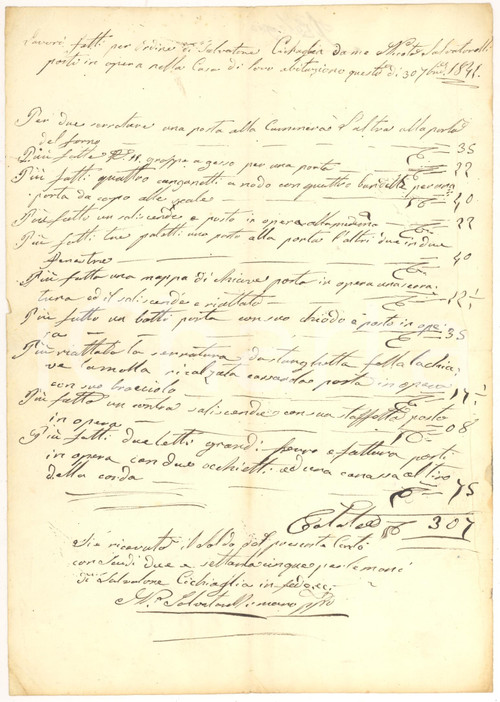 Lavori fatti per ordine di Salvatore Cichaglia da me Nicola Salvatorelli
posti in opera nella Casa di loro abitazione questo dì 30 7bre 1841.
Per due serrature una posta alla Cammera l'altra alla porta
del forno — 35
Più fatte grappe a gesso per una porta — 22
Più fatti quattro canganetti a nodo con quattro bandelle per una
porta da capo alle scale — 40
Più fatto un saliscende e posto in opera alla medema — 22
Più fatti tre paletti uno posto alla porta l'altri due in due
fenestre — 40
Più fatto una mappa di chiave posta in opera una serra-
tura ed il saliscende riattato — 12½
Più fatto un batti porta con suo chiodo e posto in ope-
ra — 35
Più riattata la serratura da stanghetta fatta la chia-
ve la molla rialzata posta in opera
con suo bracciolo — 17½
Più fatto un contra saliscende con sua staffetta posto
in opera — 08
Più fatti due letti grandi ferro e fattura posti
in opera con due occhietti ed una al tiro
della corda — 75
Totale 307
Si è ricevuto il saldo del presente Conto
con scudi due e settanta cinque per le mani
di Salvatore Cichaglia in fede ec.
Na. Salvatorelli mano ppa